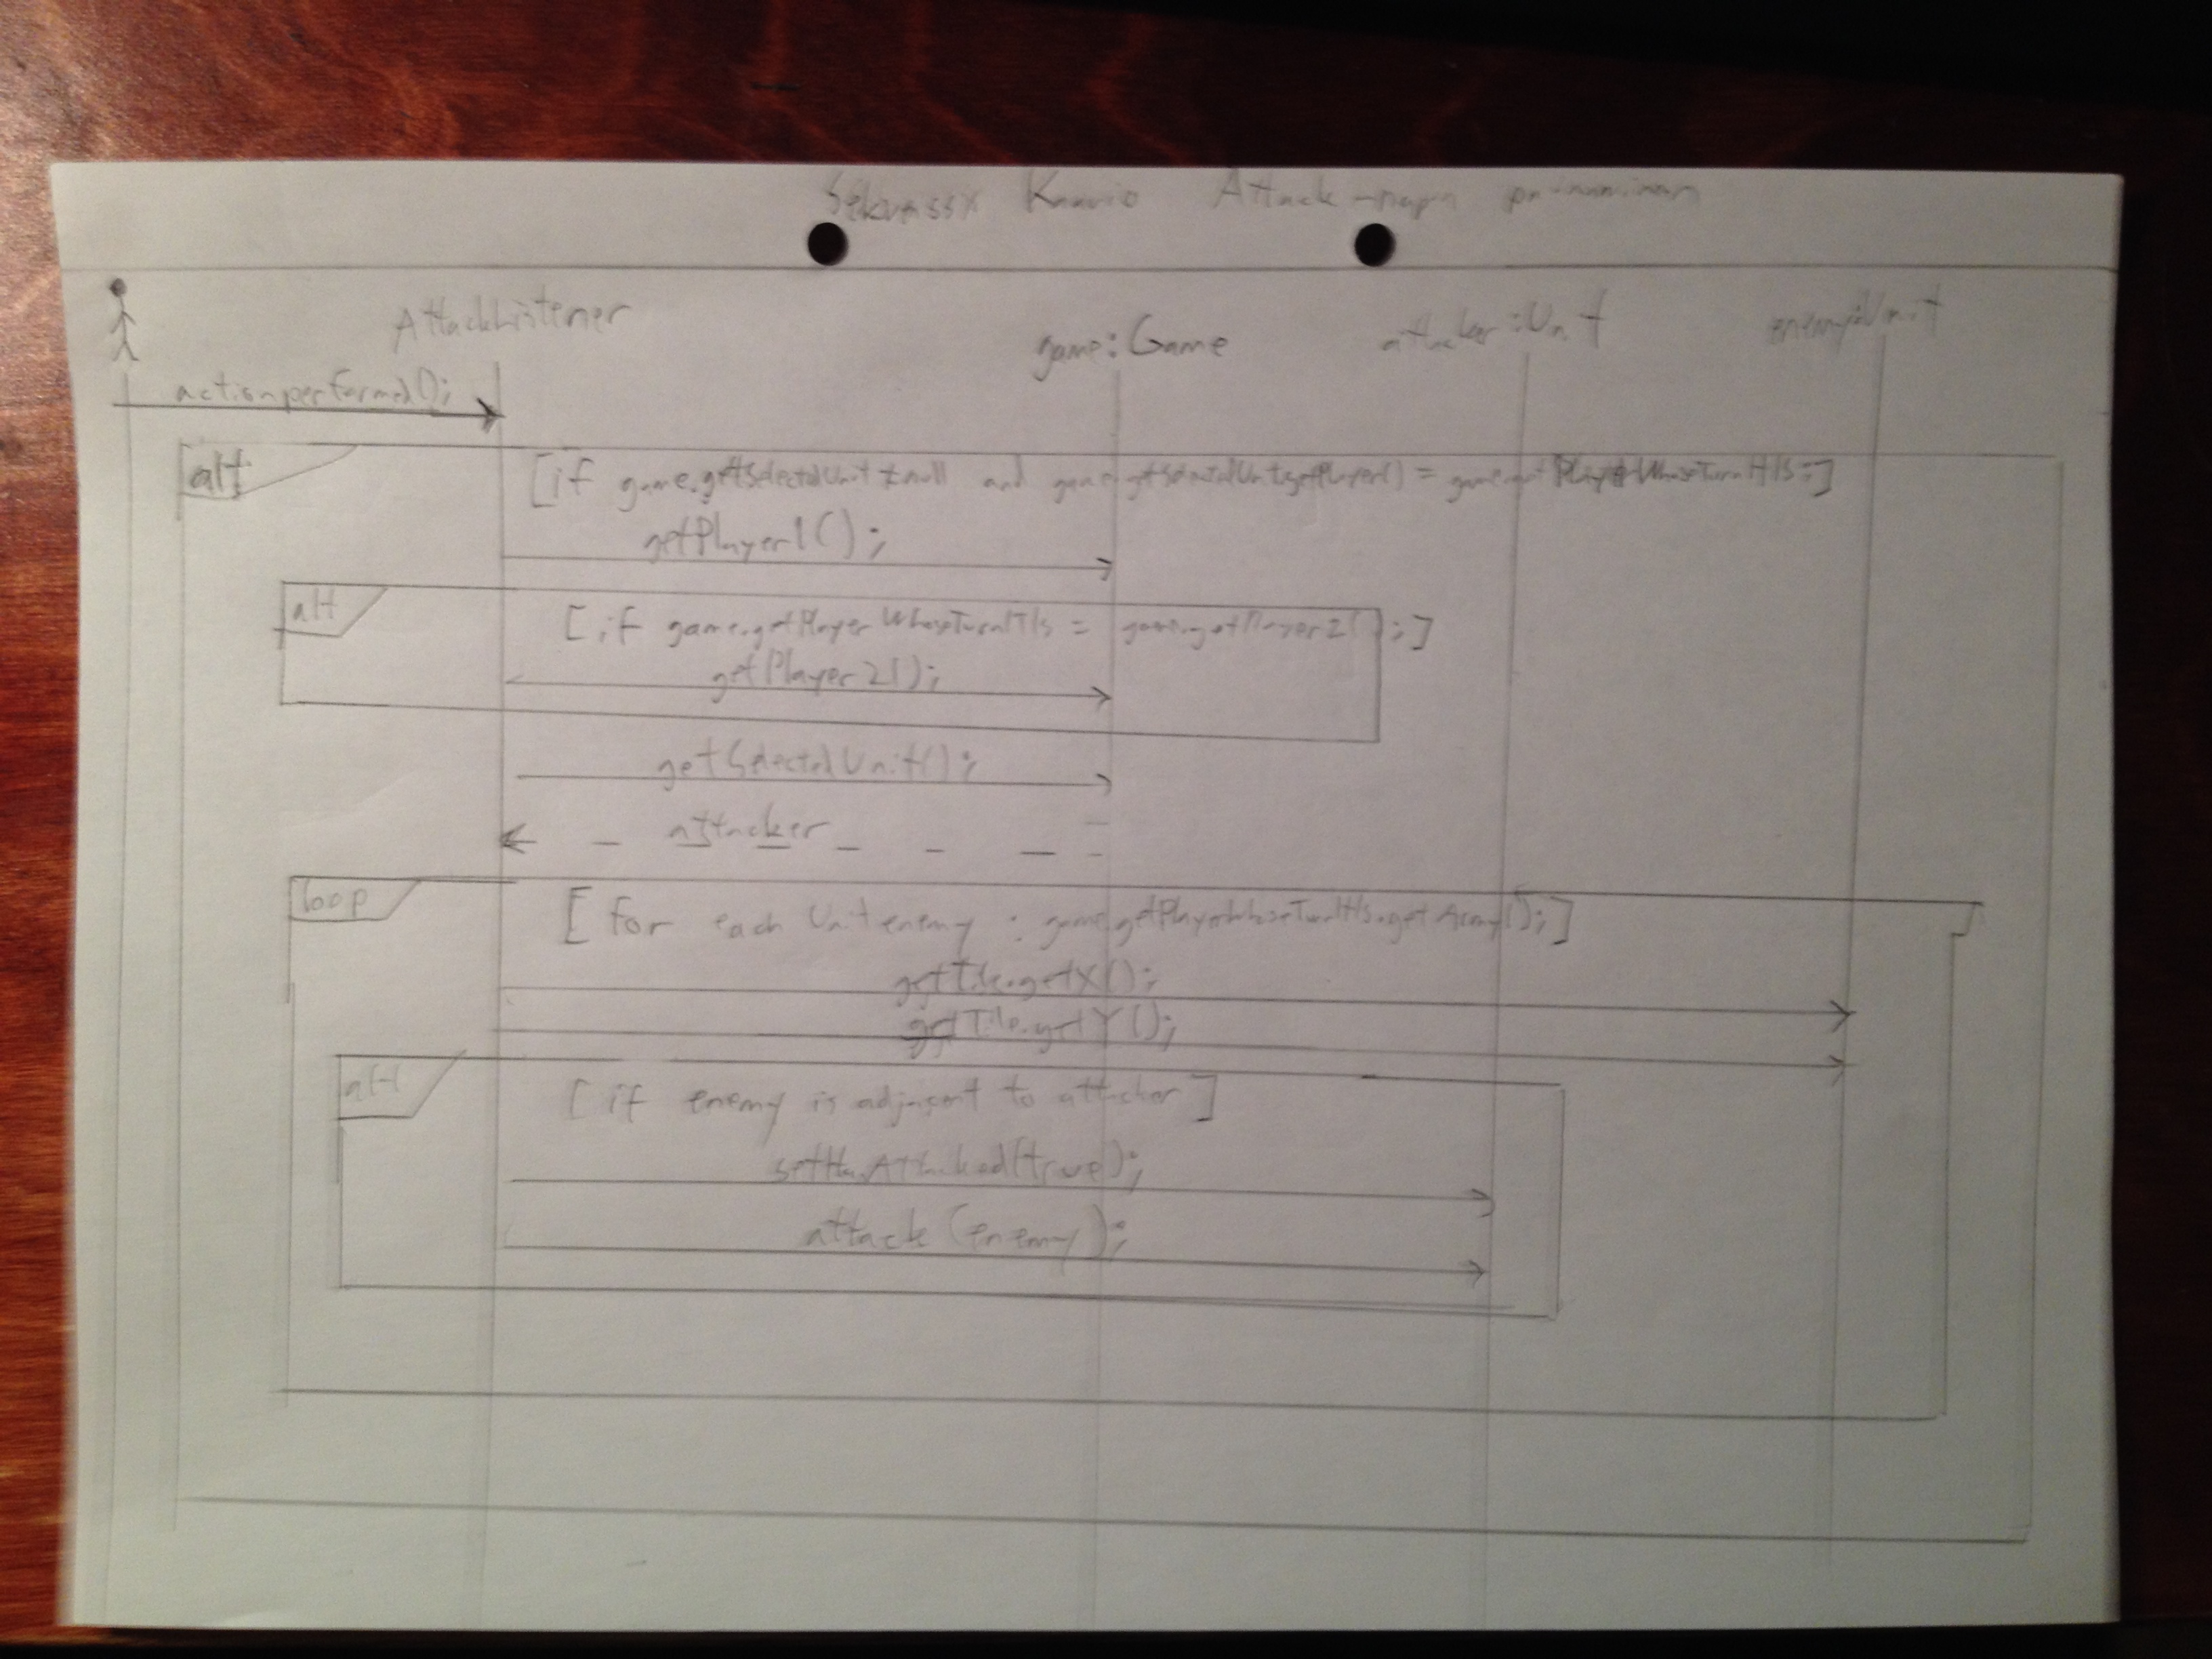 Sekvenssi Kaavio Attack-napin painaminen
AttackListener
game:Game
attacker:Unit
enemy:Unit
actionperformed();
alt
[if game.getSelectedUnit ≠ null and game.getSelectedUnit.getPlayer() = game.getPlayerWhoseTurnItIs;]
getPlayer1();
alt
[if game.getPlayerWhoseTurnItIs = game.getPlayer2();]
getPlayer2();
getSelectedUnit();
attacker
loop
[for each Unit enemy : game.getPlayerWhoseTurnItIs.getArmy();]
getTile.getX();
getTile.getY();
alt
[if enemy is adjacent to attacker]
setHasAttacked(true);
attack(enemy);